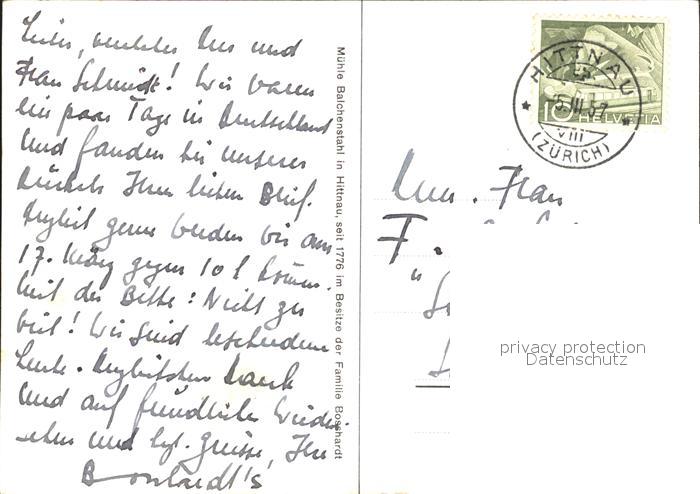 Lieber, verehrter Herr und
Frau Schmidt! Wir waren
ein paar Tage in Deutschland
und fanden bei unserer
Rückkehr Ihren lieben Brief.
gerne werden wir am
17. März gegen 10 h kommen.
mit der Bitte: Nicht zu
viel! Wir sind bescheidene
Leute. Dank
und auf freundliches Wieder-
sehen und hzl. Grüsse, Ihre
Bosshardt's
Mühle Balchenstahl in Hittnau, seit 1776 im Besitze der Familie Bosshardt
HITTNAU
5.III.57
VIII
(ZÜRICH)
10 HELVETIA
Frau
F.
privacy protection
Datenschutz